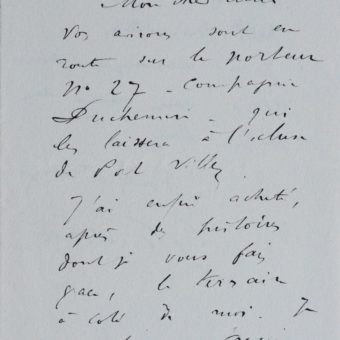 Mon cher ami
Vos avirons sont en
route sur le porteur
No 27 - compagnie
Duchemin - qui
les laissera à l'écluse
de Port Villez
J'ai enfin acheté,
après des histoires
dont je vous fais
grace, le terrain
à coté de moi. Je